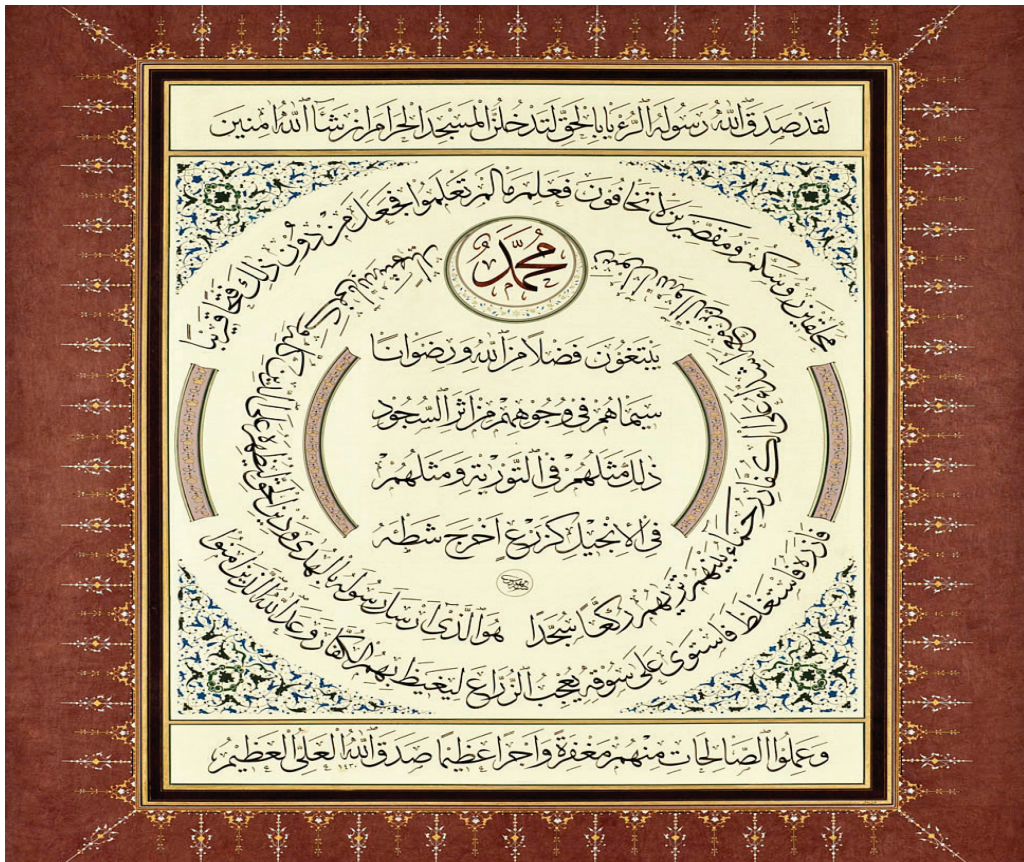 لَقَدْ صَدَقَ اللّٰهُ رَسُولَهُ الرُّءْيَا بِالْحَقِّ لَتَدْخُلُنَّ الْمَسْجِدَ الْحَرَامَ اِنْ شَآءَ اللّٰهُ اٰمِنِينَ
مُحَلِّقِينَ رُءُوسَكُمْ وَمُقَصِّرِينَ لَا تَخَافُونَ فَعَلِمَ مَا لَمْ تَعْلَمُوا فَجَعَلَ مِنْ دُونِ ذٰلِكَ فَتْحًا قَرِيبًا
هُوَ الَّذِي اَرْسَلَ رَسُولَهُ بِالْهُدٰى وَدِينِ الْحَقِّ لِيُظْهِرَهُ عَلَى الدِّينِ كُلِّهِ وَكَفٰى بِاللّٰهِ شَهِيدًا
مُحَمَّدٌ
رَسُولُ اللّٰهِ وَالَّذِينَ مَعَهُ اَشِدَّآءُ عَلَى الْكُفَّارِ رُحَمَآءُ بَيْنَهُمْ تَرٰيهُمْ رُكَّعًا سُجَّدًا
يَبْتَغُونَ فَضْلًا مِنَ اللّٰهِ وَرِضْوَانًا
سِيمَاهُمْ فِي وُجُوهِهِمْ مِنْ اَثَرِ السُّجُودِ
ذٰلِكَ مَثَلُهُمْ فِي التَّوْرٰيةِ وَمَثَلُهُمْ
فِي الْاِنْجِيلِ كَزَرْعٍ اَخْرَجَ شَطْـَٔهُ
فَاٰزَرَهُ فَاسْتَغْلَظَ فَاسْتَوٰى عَلٰى سُوقِهِ يُعْجِبُ الزُّرَّاعَ لِيَغِيظَ بِهِمُ الْكُفَّارَ وَعَدَ اللّٰهُ الَّذِينَ اٰمَنُوا
وَعَمِلُوا الصَّالِحَاتِ مِنْهُمْ مَغْفِرَةً وَاَجْرًا عَظِيمًا صَدَقَ اللّٰهُ الْعَلِيُّ الْعَظِيمُ